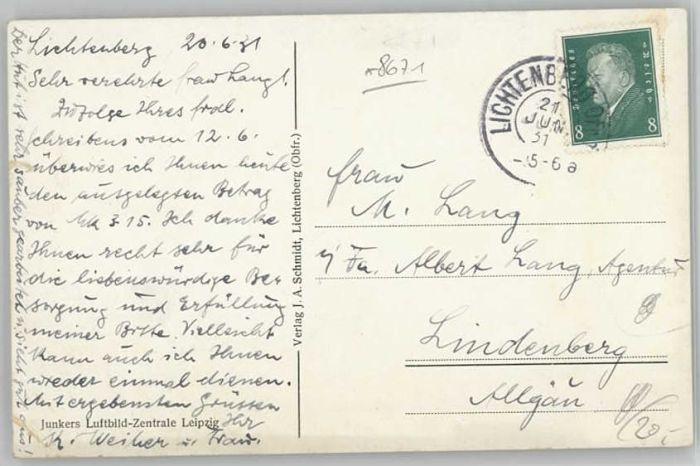 Lichtenberg 20.6.31
Sehr verehrte Frau Lang!
Zufolge Ihres frdl.
Schreibens vom 12.6.
überwies ich Ihnen heute
den ausgelegten Betrag
von Mk 3.15. Ich danke
Ihnen recht sehr für
die liebenswürdige Be-
sorgung und Erfüllung
meiner Bitte. Vielleicht
kann auch ich Ihnen
wieder einmal dienen.
Mit ergebensten Grüssen
Ihr
K. Weiher u. Frau.
Der Hut ist sehr sauber gearbeitet u. sieht gut aus!
Junkers Luftbild-Zentrale Leipzig
Verlag J. A. Schmidt, Lichtenberg (Obfr.)
8671
LICHTENBERG
21
JUN
31
5-6
8 8
Frau
M. Lang
Fa. Albert Lang, Agentur
Lindenberg
Allgäu
20,-